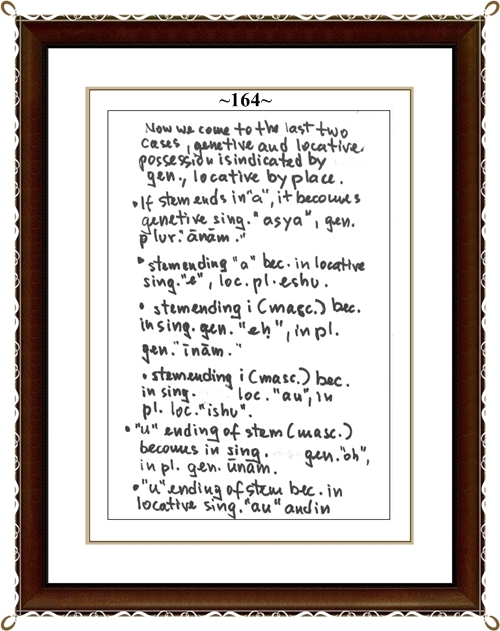 ~164~
Now we come to the last two
cases, genetive and locative.
possession is indicated by
gen., locative by place.
• If stem ends in "a", it becomes
genetive sing. "asya", gen.
plur. "ānām."
• stem ending "a" bec. in locative
sing. "e", loc. pl. eshu.
• stem ending i (masc.) bec.
in sing. gen. "eḥ", in pl.
gen. "īnām."
• stem ending i (masc.) bec.
in sing. loc. "au", in
pl. loc. "ishu".
• "u" ending of stem (masc.)
becomes in sing. gen. "oh",
in pl. gen. ūnām.
• "u" ending of stem bec. in
locative sing. "au" and in